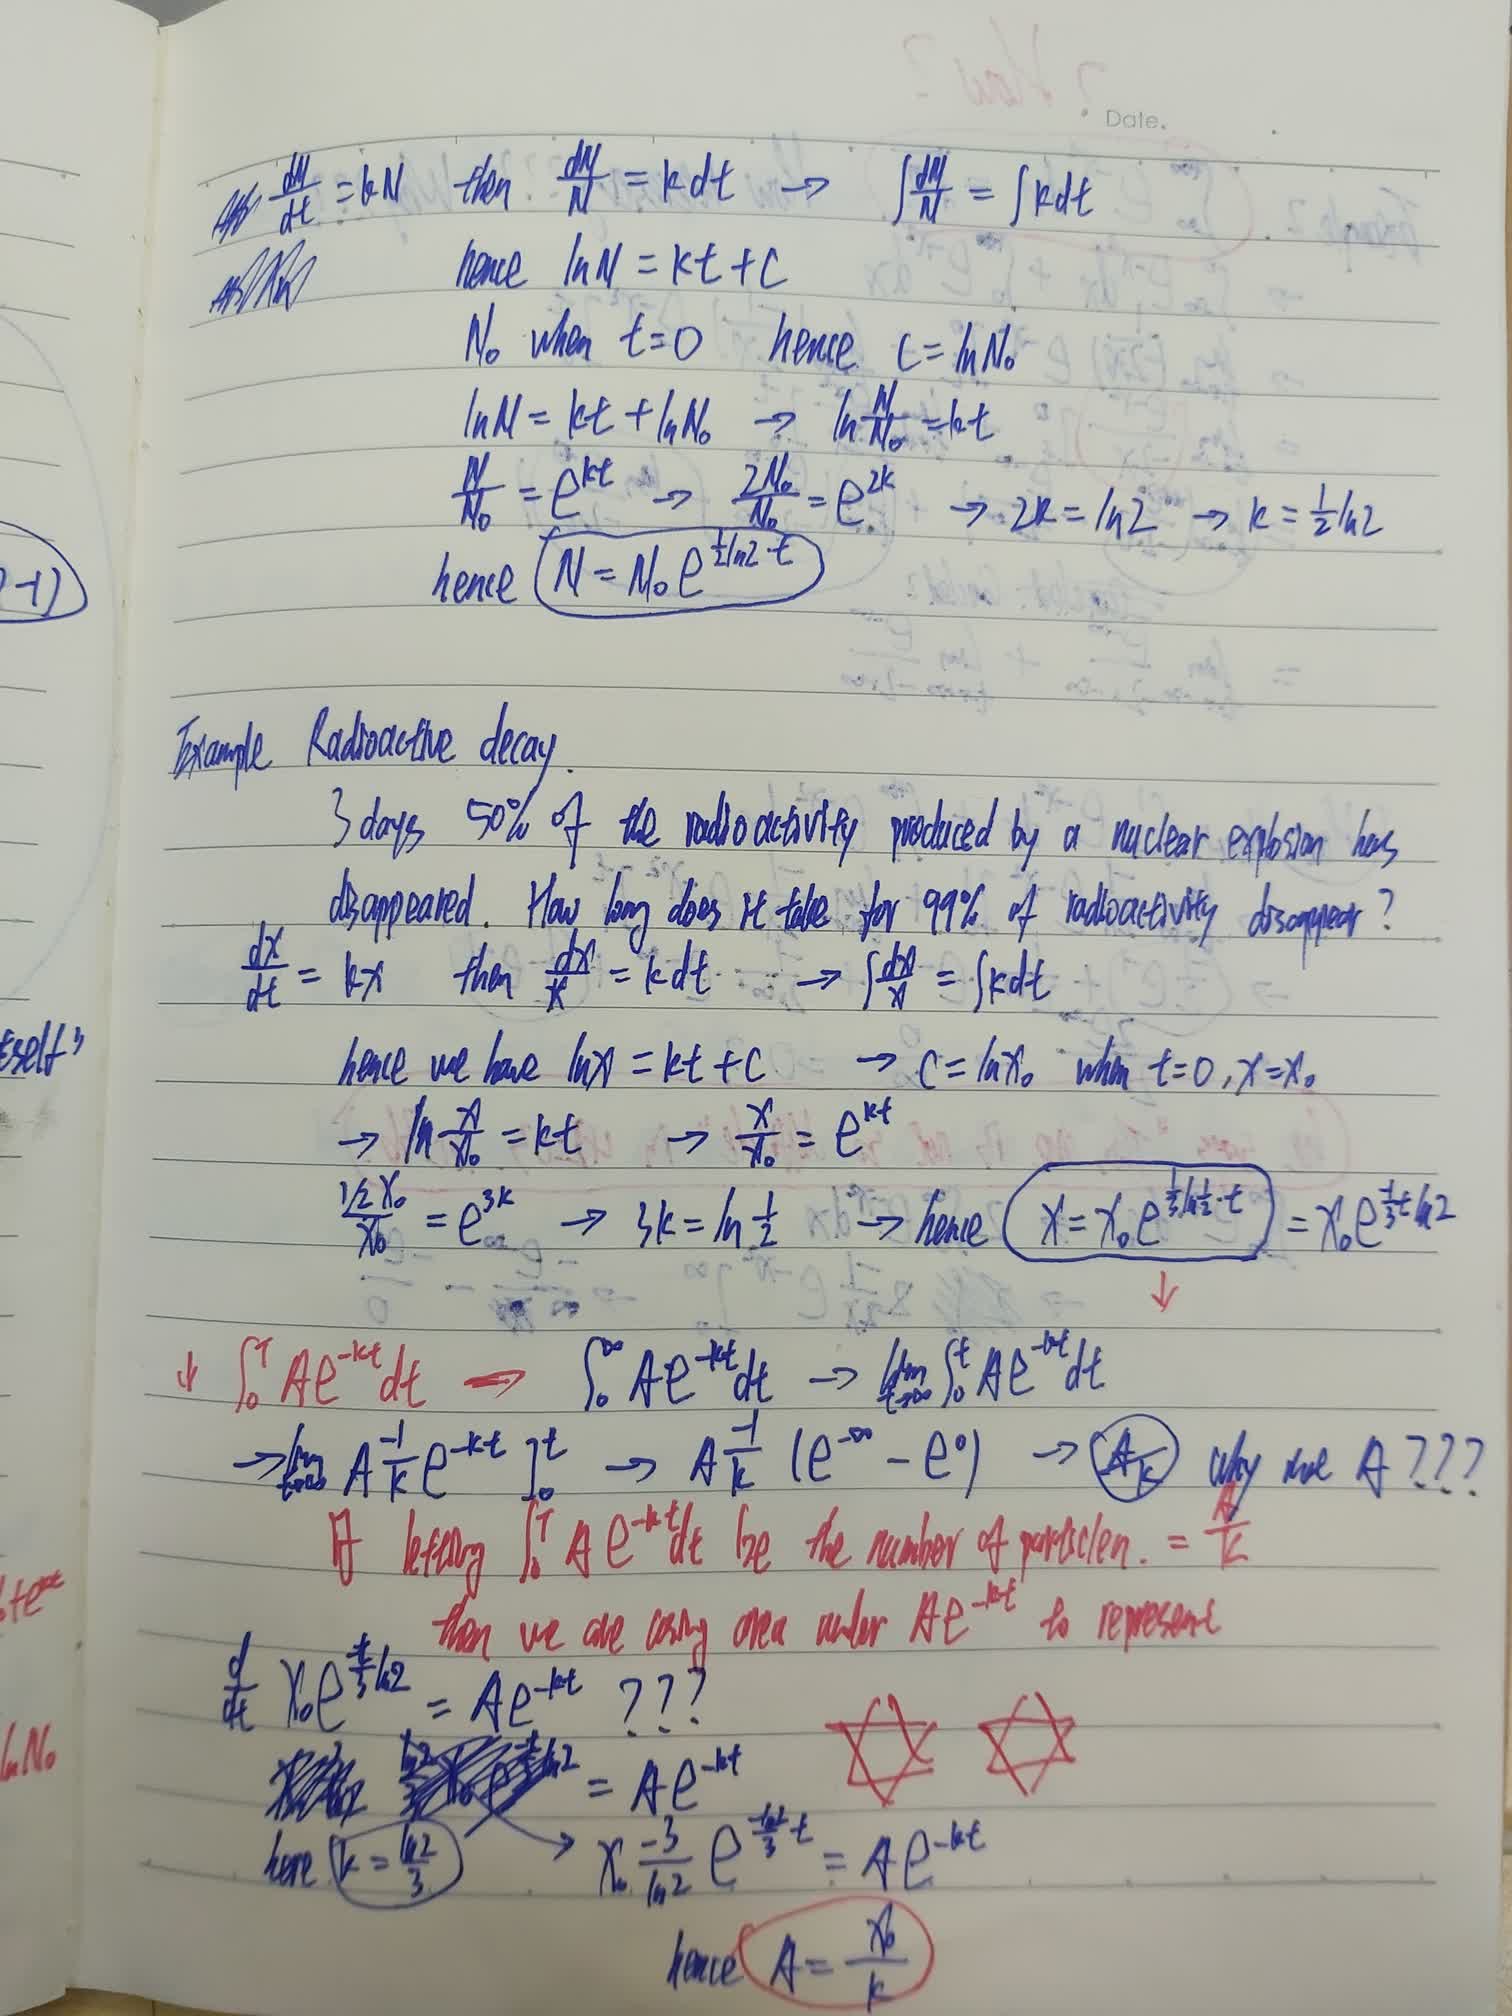 Date.
dN/dt = kN then dN/N = k dt → ∫dN/N = ∫k dt
hence lnN = kt + C
N₀ when t=0 hence C = lnN₀
lnN = kt + lnN₀ → ln N/N₀ = kt
N/N₀ = e^{kt} → 2N₀/N₀ = e^{2k} → 2k = ln2 → k = ½ln2
hence N = N₀e^{½ln2·t}
-1)
Example Radioactive decay.
3 days 50% of the radioactivity produced by a nuclear explosion has
disappeared. How long does it take for 99% of radioactivity disappear?
dx/dt = kx then dx/x = k dt → ∫dx/x = ∫k dt
hence we have lnx = kt + C → C = lnx₀ when t=0, x=x₀
→ ln x/x₀ = kt → x/x₀ = e^{kt}
1/2 x₀/x₀ = e^{3k} → 3k = ln ½ → hence x = x₀e^{⅓ln½·t} = x₀e^{-⅓t ln2}
↓
↓ ∫₀^T Ae^{-kt}dt → ∫₀^∞ Ae^{-kt}dt → lim t→∞ ∫₀^t Ae^{-kt}dt
→ lim t→∞ A -1/k e^{-kt} ]₀^t → A -1/k (e^{-∞} - e⁰) → A/k why not A???
If letting ∫₀^T Ae^{-kt}dt be the number of particlen. = A/k
then we are using area under Ae^{-kt} to represent
d/dt x₀e^{-t/3 ln2} = Ae^{-kt} ???
= Ae^{-kt}
here k = ln2/3 → x₀ -3/ln2 e^{-ln2/3 t} = Ae^{-kt}
hence A = x₀/k
lnN₀